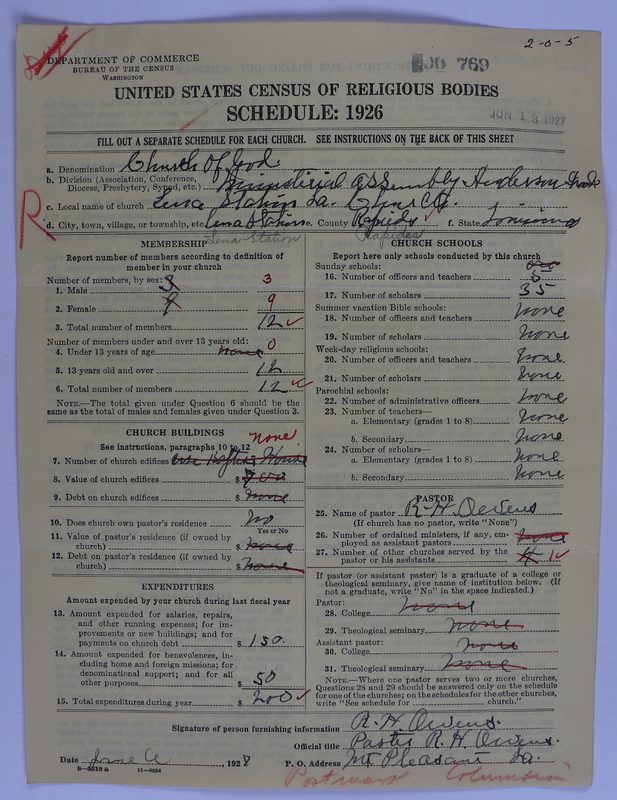 2-0-5
DEPARTMENT OF COMMERCE
BUREAU OF THE CENSUS
WASHINGTON
769
UNITED STATES CENSUS OF RELIGIOUS BODIES
SCHEDULE: 1926
JUN 13 1927
FILL OUT A SEPARATE SCHEDULE FOR EACH CHURCH. SEE INSTRUCTIONS ON THE BACK OF THIS SHEET
a. Denomination Church Of God.
b. Division (Association, Conference, Diocese, Presbytery, Synod, etc.) Ministerial assembly Anderson
c. Local name of church Lena Station La. Church
R
d. City, town, village, or township, etc. Lena Station e. County Rapids f. State
Lena Station Rapides
MEMBERSHIP
Report number of members according to definition of member in your church
Number of members, by sex:
1. Male 3
2. Female 9
3. Total number of members 12
Number of members under and over 13 years old:
4. Under 13 years of age none 0
5. 13 years old and over 12
6. Total number of members 12
NOTE.—The total given under Question 6 should be the same as the total of males and females given under Question 3.
CHURCH BUILDINGS
See instructions, paragraphs 10 to 12
none
7. Number of church edifices
8. Value of church edifices $
9. Debt on church edifices $ none
10. Does church own pastor's residence no
Yes or No
11. Value of pastor's residence (if owned by church) $ none
12. Debt on pastor's residence (if owned by church) $ none
EXPENDITURES
Amount expended by your church during last fiscal year
13. Amount expended for salaries, repairs, and other running expenses; for improvements or new buildings; and for payments on church debt $ 150.
14. Amount expended for benevolences, including home and foreign missions; for denominational support; and for all other purposes $ 50
15. Total expenditures during year $ 200
CHURCH SCHOOLS
Report here only schools conducted by this church
Sunday schools:
16. Number of officers and teachers 6
17. Number of scholars 35
Summer vacation Bible schools:
18. Number of officers and teachers none
19. Number of scholars none
Week-day religious schools:
20. Number of officers and teachers none
21. Number of scholars none
Parochial schools:
22. Number of administrative officers none
23. Number of teachers—
a. Elementary (grades 1 to 8) none
b. Secondary none
24. Number of scholars—
a. Elementary (grades 1 to 8) none
b. Secondary none
PASTOR
25. Name of pastor R-H Owens
(If church has no pastor, write "None")
26. Number of ordained ministers, if any, employed as assistant pastors none
27. Number of other churches served by the pastor or his assistants 1
If pastor (or assistant pastor) is a graduate of a college or theological seminary, give name of institution below. (If not a graduate, write "No" in the space indicated.)
Pastor:
28. College none
29. Theological seminary none
Assistant pastor:
30. College none
31. Theological seminary none
NOTE.—Where one pastor serves two or more churches, Questions 28 and 29 should be answered only on the schedule for one of the churches; on the schedules for the other churches, write "See schedule for church."
Signature of person furnishing information R. H. Owens.
Official title Paster R. H. Owens.
Date June 192
P. O. Address Mt Pleasant La.
8—5518 a 11—9024
Postmark Columbia